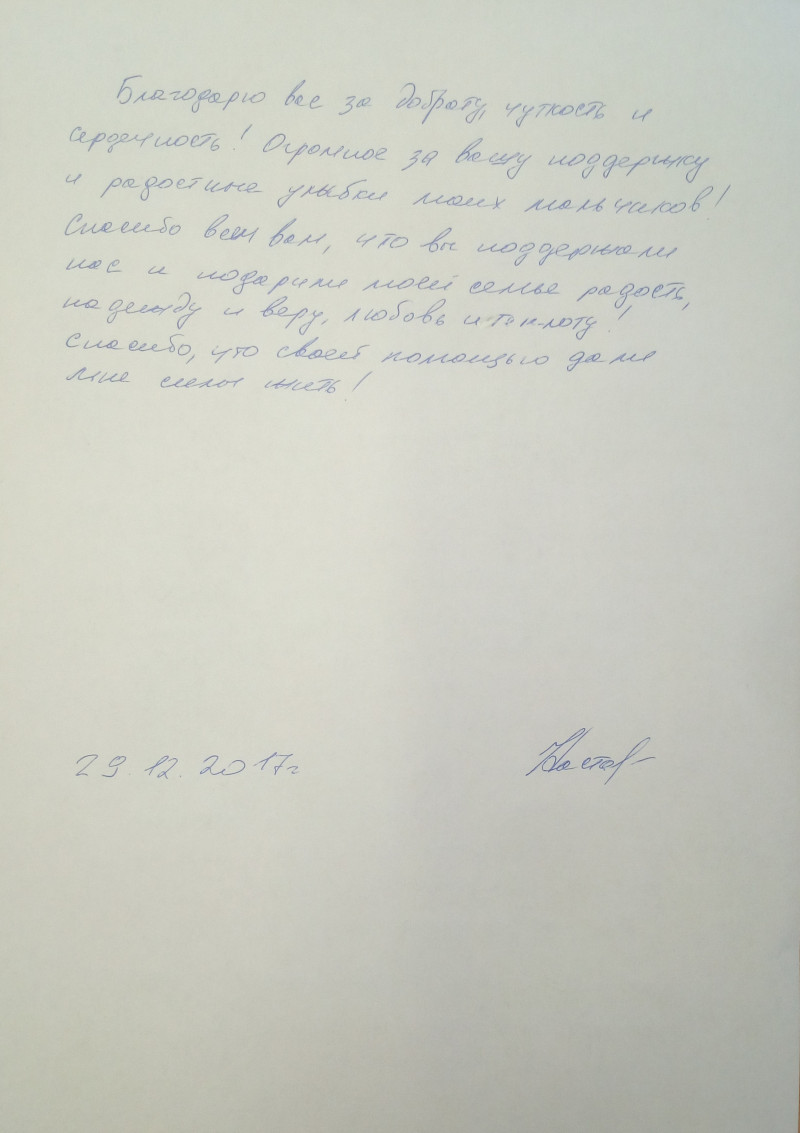 Благодарю вас за доброту, чуткость и
сердечность! Огромное за вашу поддержку
и радостные улыбки моих мальчиков!
Спасибо всем вам, что вы поддержали
нас и подарили моей семье радость,
надежду и веру, любовь и теплоту!
Спасибо, что своей помощью дали
мне силы жить!
29.12.2017г